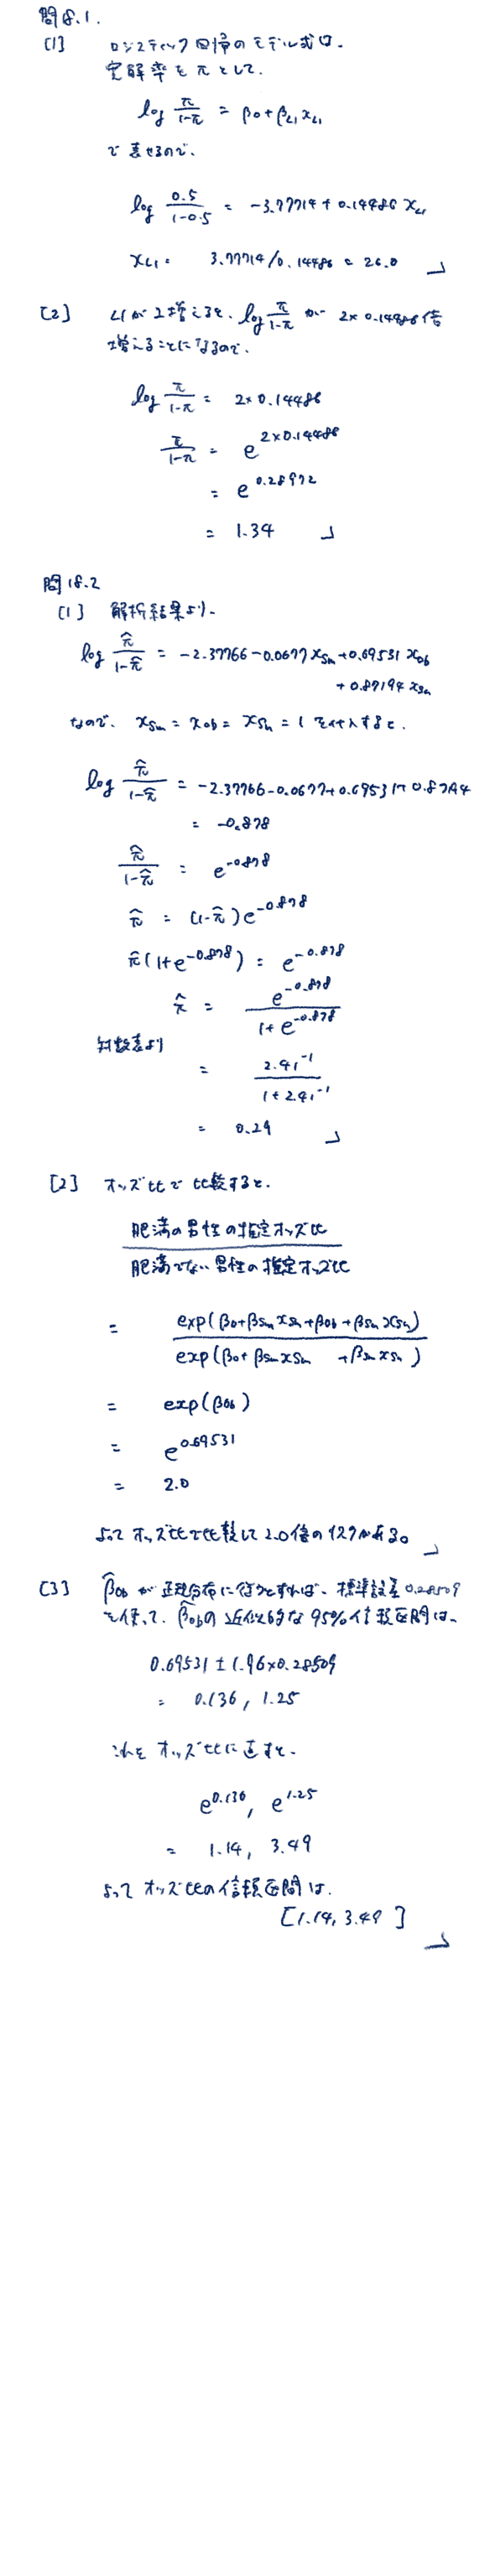 問18.1.
[1] ロジスティック回帰のモデル式は、
完解率をπとして、
log π/(1-π) = β0+βLI xLI
で表せるので、
log 0.5/(1-0.5) = -3.77714+0.14486 xLI
xLI = 3.77714/0.14486 = 26.0 」
[2] LIが2増えると、log π/(1-π) が 2×0.14486倍
増えることになるので、
log π/(1-π) = 2×0.14486
π/(1-π) = e^{2×0.14486}
= e^{0.28972}
= 1.34 」
問18.2
[1] 解析結果より、
log π̂/(1-π̂) = -2.37766-0.0677xSm+0.69531xOb
+0.87194xSn
なので、xSm = xOb = xSn = 1 を代入すると、
log π̂/(1-π̂) = -2.37766-0.0677+0.69531+0.87194
= -0.878
π̂/(1-π̂) = e^{-0.878}
π̂ = (1-π̂)e^{-0.878}
π̂(1+e^{-0.878}) = e^{-0.878}
π̂ = e^{-0.878}/(1+e^{-0.878})
対数表より
= 2.41^{-1}/(1+2.41^{-1})
= 0.29 」
[2] オッズ比で比較すると、
肥満の男性の推定オッズ比
肥満でない男性の推定オッズ比
= exp(β0+βSm xSm+βOb+βSn xSn)/exp(β0+βSm xSm +βSn xSn)
= exp(βOb)
= e^{0.69531}
= 2.0
よってオッズ比で比較して2.0倍のリスクがある。 」
[3] β̂Obが正規分布に従うとすれば、標準誤差0.28509
を使って、β̂Obの近似的な95%信頼区間は、
0.69531±1.96×0.28509
= 0.136, 1.25
これをオッズ比に直すと、
e^{0.136}, e^{1.25}
= 1.14, 3.49
よってオッズ比の信頼区間は、
[1.14, 3.49] 」